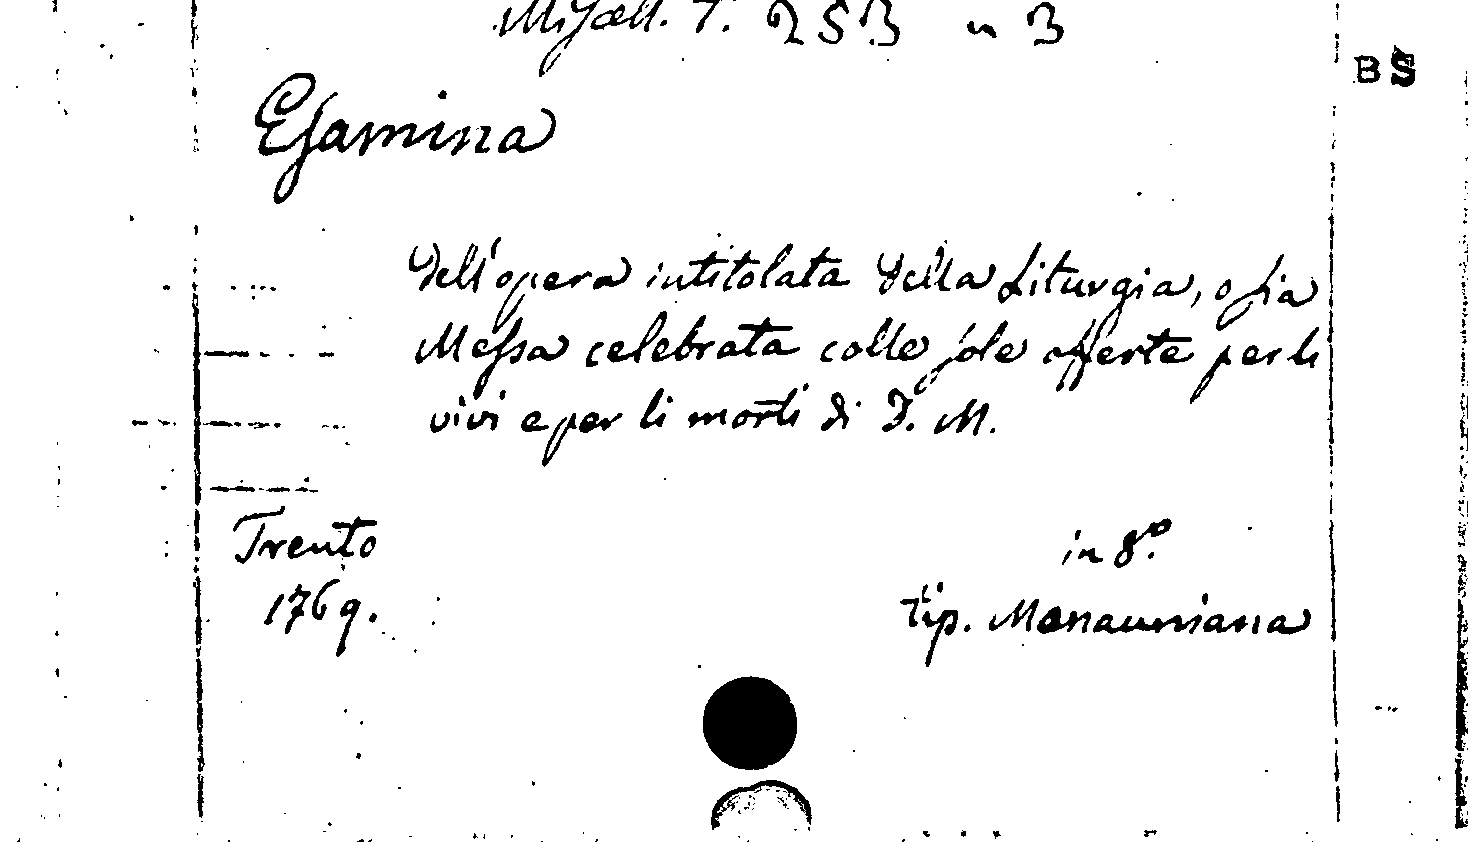 Miscell. T. 253 n 3
BS
Esamina
dell'opera intitolata della Liturgia, o sia
Messa celebrata colle sole offerte per li
vivi e per li morti di F. M.
Trento
in 8.º
1769.
tip. Monauniana